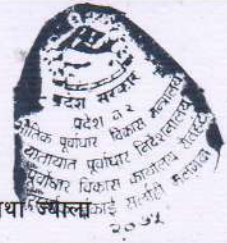 प्रदेश सरकार
प्रदेश नं २
भौतिक पूर्वाधार विकास मन्त्रालय
यातायात पूर्वाधार निर्देशनालय
पूर्वाधार विकास कार्यालय
सर्लाही मलंगवा
२०७५
था ज्याला